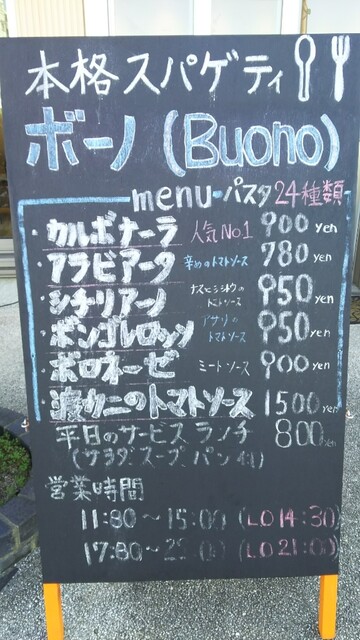 本格スパゲティ
ボーノ(Buono)
menu パスタ24種類
・カルボナーラ 人気No1 900yen
・アラビアータ 辛めのトマトソース 780yen
・シチリアーノ ナスとシメジのトマトソース 950yen
・ボンゴレロッソ アサリのトマトソース 950yen
・ボロネーゼ ミートソース 900yen
・渡りガニのトマトソース 1500yen
平日のサービスランチ 800yen
(サラダ、スープ、パン付)
営業時間
11:30〜15:00 (LO 14:30)
17:30〜22:00 (LO 21:00)